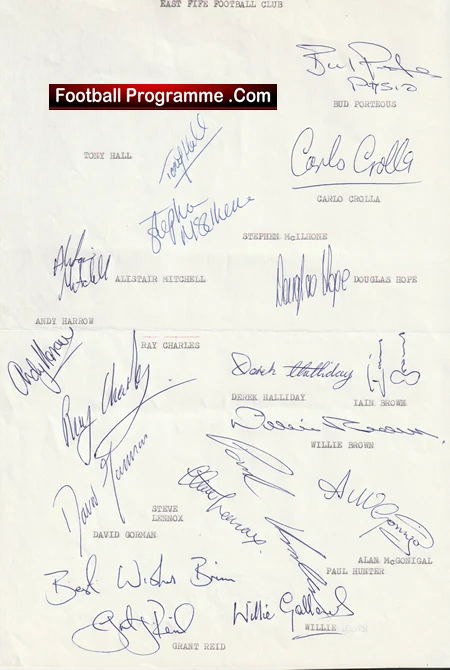 EAST FIFE FOOTBALL CLUB
Bud P
Physio
Football Programme .Com
BUD PORTEOUS
Tony Hall
TONY HALL
Carlo Crolla
CARLO CROLLA
Stephen McIlhone
STEPHEN McILHONE
Alistair Mitchell
ALISTAIR MITCHELL
Douglas Hope
DOUGLAS HOPE
ANDY HARROW
Andy Harrow
RAY CHARLES
Ray Charles
Derek Halliday
DEREK HALLIDAY
IAIN BROWN
Willie Brown
WILLIE BROWN
David Gorman
STEVE
LENNOX
Steve Lennox
DAVID GORMAN
Paul Hunter
A McGonigal
ALAN McGONIGAL
PAUL HUNTER
Best Wishes Brian
Grant Reid
GRANT REID
Willie Galland
WILLIE